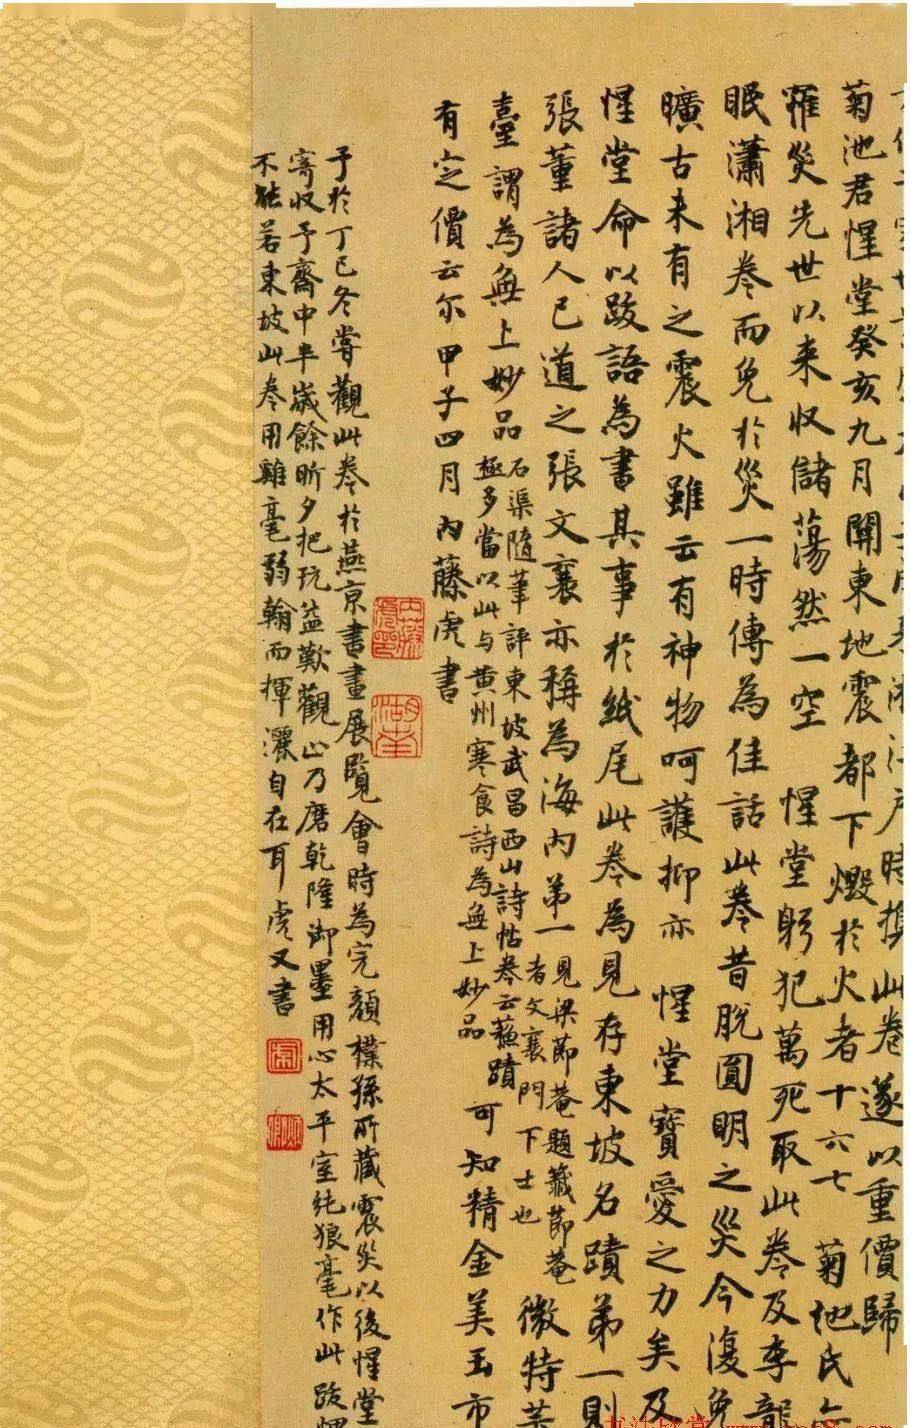 時攜此卷遂以重價歸
菊池君惺堂癸亥九月關東地震都下燬於火者十六七菊池氏亦
罹災先世以来收儲蕩然一空 惺堂躬犯萬死取此卷及李龍
眠瀟湘卷而免於災一時傳為佳話此卷昔脫圓明之災今復免
曠古未有之震火雖云有神物呵護抑亦 惺堂寶愛之力矣及
惺堂命以跋語為書其事於紙尾此卷為見存東坡名蹟第一則
張董諸人已道之張文襄亦稱為海內第一見梁節菴題籤節菴者文襄門下士也微特
臺謂為無上妙品石渠隨筆評東坡武昌西山詩帖卷云蘇蹟極多當以此与黄州寒食詩為無上妙品可知精金美玉市
有定價云尔甲子四月内藤虎書
予於丁巳冬嘗觀此卷於燕京書畫展覽會時為完顏樸孫所藏震災以後惺堂
寄收予齋中半歲餘昕夕把玩益歎觀止乃磨乾隆御墨用心太平室純狼毫作此跋
不能若東坡此卷用雞毫弱翰而揮灑自在耳虎又書